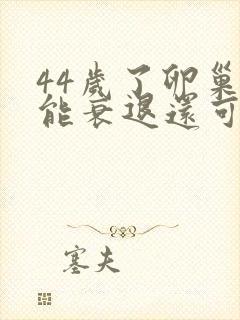 44歲了卵巢
能衰退還可
塞夫